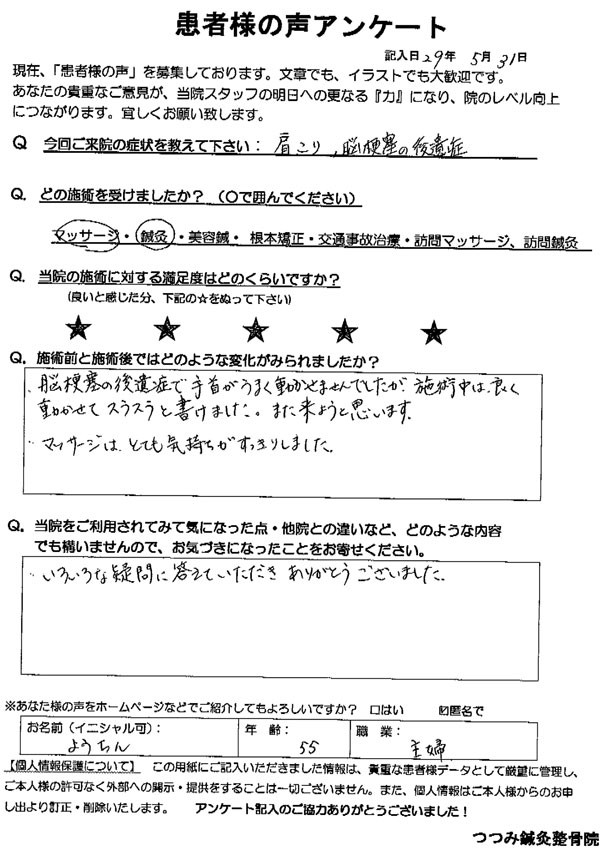 患者様の声アンケート
記入日29年 5月 31日
現在、「患者様の声」を募集しております。文章でも、イラストでも大歓迎です。
あなたの貴重なご意見が、当院スタッフの明日への更なる『力』になり、院のレベル向上
につながります。宜しくお願い致します。
Q 今回ご来院の症状を教えて下さい： 肩こり、脳梗塞の後遺症
Q. どの施術を受けましたか？（〇で囲んでください）
マッサージ・鍼灸・美容鍼・根本矯正・交通事故治療・訪問マッサージ、訪問鍼灸
Q. 当院の施術に対する満足度はどのくらいですか？
(良いと感じた分、下記の☆をぬって下さい)
★ ★ ★ ★ ★
Q. 施術前と施術後ではどのような変化がみられましたか？
・脳梗塞の後遺症で手首がうまく動かせませんでしたが、施術中は、良く
動かせてスラスラと書けました。また来ようと思います。
・マッサージは、とても気持ちがすっきりしました。
Q. 当院をご利用されてみて気になった点・他院との違いなど、どのような内容
でも構いませんので、お気づきになったことをお寄せください。
・いろいろな疑問に答えていただきありがとうございました。
※あなた様の声をホームページなどでご紹介してもよろしいですか？ □はい ☑匿名で
お名前（イニシャル可）： ようちん 年 齢： 55 職 業： 主婦
【個人情報保護について】 この用紙にご記入いただきました情報は、貴重な患者様データとして厳重に管理し、
ご本人様の許可なく外部への開示・提供をすることは一切ございません。また、個人情報はご本人様からのお申
し出より訂正・削除いたします。 アンケート記入のご協力ありがとうございました！
つつみ鍼灸整骨院